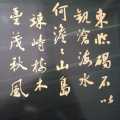 東臨碣石以
觀滄海水
何澹々山島
竦峙樹木
豐茂秋風